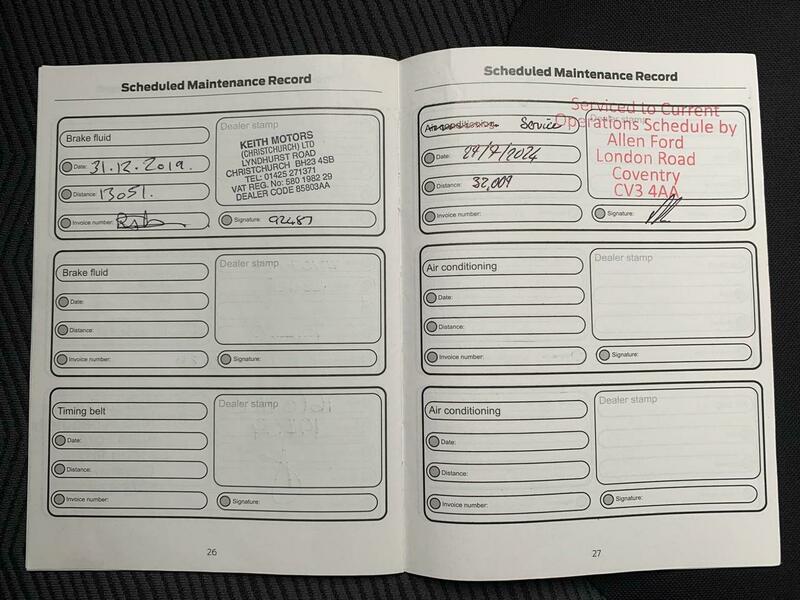 Scheduled Maintenance Record
Brake fluid
Date: 31.12.2019.
Distance: 13051.
Invoice number:
Dealer stamp
KEITH MOTORS
(CHRISTCHURCH) LTD
LYNDHURST ROAD
CHRISTCHURCH BH23 4SB
TEL: 01425 271371
VAT REG. No: 580 1982 29
DEALER CODE 85803AA
Signature: 92487
Brake fluid
Date:
Distance:
Invoice number:
Dealer stamp
Signature:
Timing belt
Date:
Distance:
Invoice number:
Dealer stamp
Signature:
26
Scheduled Maintenance Record
Air conditioning Service
Date: 29/7/2024
Distance: 32,009
Invoice number:
Dealer stamp
Serviced to Current
Operations Schedule by
Allen Ford
London Road
Coventry
CV3 4AA
Signature:
Air conditioning
Date:
Distance:
Invoice number:
Dealer stamp
Signature:
Air conditioning
Date:
Distance:
Invoice number:
Dealer stamp
Signature:
27